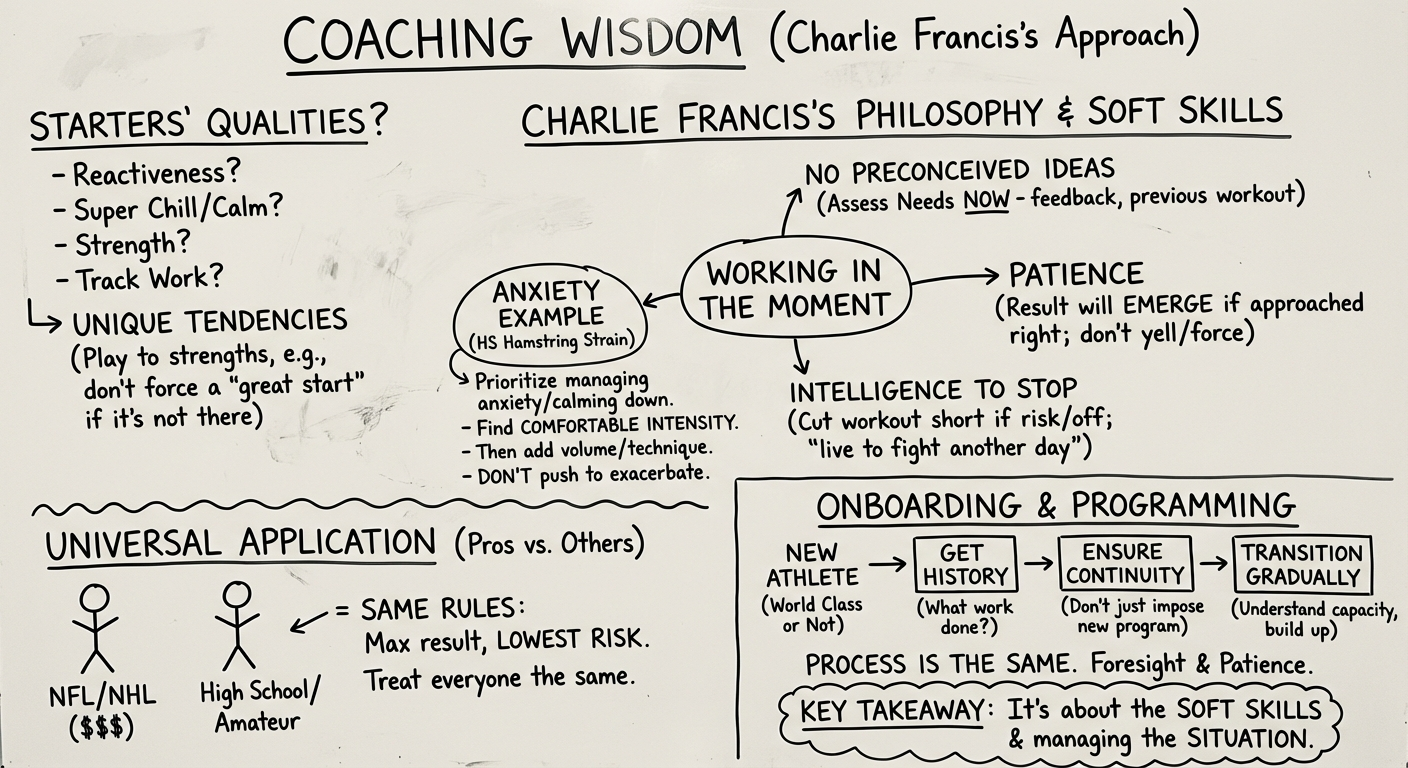 COACHING WISDOM (Charlie Francis's Approach)
STARTERS' QUALITIES?
- Reactiveness?
- Super Chill/Calm?
- Strength?
- Track Work?
UNIQUE TENDENCIES
(Play to strengths, e.g.,
don't force a "great start"
if it's not there)
CHARLIE FRANCIS'S PHILOSOPHY & SOFT SKILLS
NO PRECONCEIVED IDEAS
(Assess Needs NOW - feedback, previous workout)
WORKING IN
THE MOMENT
PATIENCE
(Result will EMERGE if approached
right; don't yell/force)
INTELLIGENCE TO STOP
(Cut workout short if risk/off;
"live to fight another day")
ANXIETY
EXAMPLE
(HS Hamstring Strain)
Prioritize managing
anxiety/calming down.
- Find COMFORTABLE INTENSITY.
- Then add volume/technique.
- DON'T push to exacerbate.
UNIVERSAL APPLICATION (Pros vs. Others)
NFL/NHL
($$$)
High School/
Amateur
= SAME RULES:
Max result, LOWEST RISK.
Treat everyone the same.
ONBOARDING & PROGRAMMING
NEW
ATHLETE
(World Class
or Not)
GET
HISTORY
(What work
done?)
ENSURE
CONTINUITY
(Don't just impose
new program)
TRANSITION
GRADUALLY
(Understand capacity,
build up)
PROCESS IS THE SAME. Foresight & Patience.
KEY TAKEAWAY: It's about the SOFT SKILLS
& managing the SITUATION.